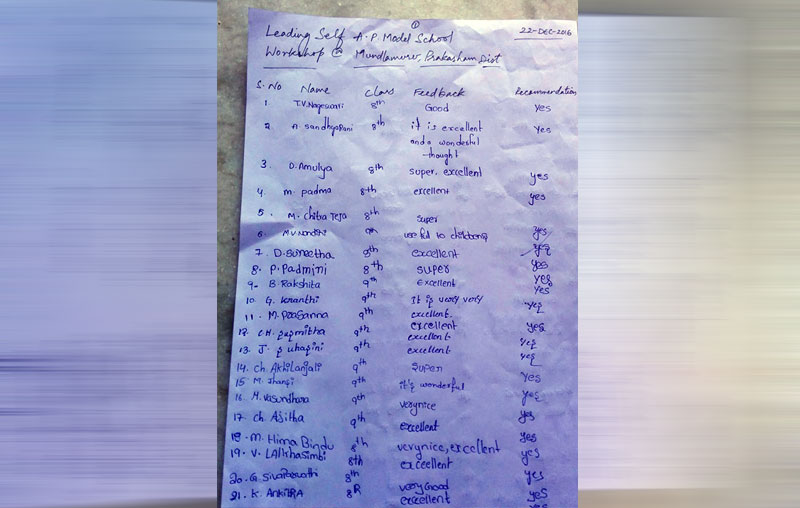 ①
Leading Self A.P Model School 22-DEC-2016
Workshop @ Mundlamuru, Prakasham Dist
S.No Name Class Feedback Recommendation
1 T.V.Nageswari 8th Good Yes
2. A sandhyaRani 8th it is excellent Yes
and a wonderful
thought
3. D.Amulya 8th super, excellent yes
4. M. padma 8th excellent yes
5. M. Chiba Teja 8th super
6. M.V.Nandini 9th useful to childrens yes
7. D.Suneetha 8th excellent yes
8. P. Padmini 8th super yes
9. B. Rakshita 9th Excellent yes
10. G. kranthi 9th It is very very yes
11. M. Prasanna 9th excellent. yes
12. C.H. 9th excellent yes
13. J. suhasini 9th excellent yes
excellent yes
14. ch Akhilanjali 9th super
15 M. 9th it's wonderful yes
16. M. Vasundhara 9th verynice yes
17. ch. Asitha 9th excellent yes
18. M. Hima Bindu 8th verynice, excellent yes
19. V. 8th exceellent yes
20. G 8th very Good yes
21. K. 8 excellent yes